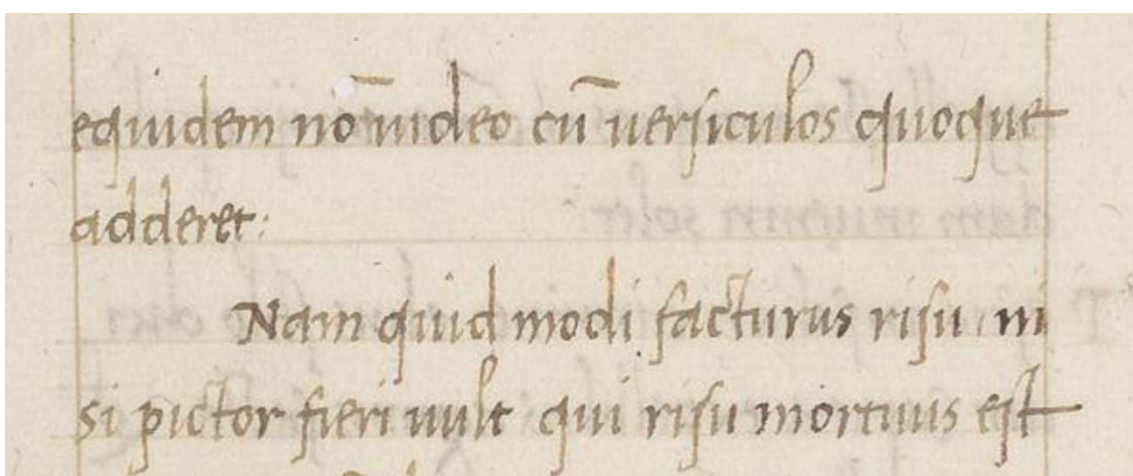 equidem nō uideo cū uersiculos quoque
adderet:
Nam quid modi facturus risu, ni
si pictor fieri uult qui risu mortuus est